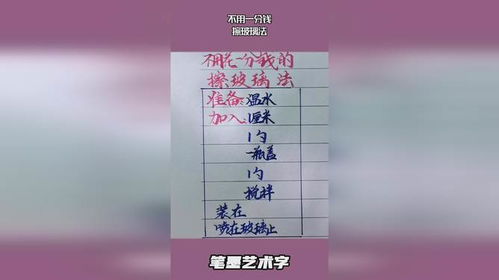 不用一分钱
擦玻璃法
不用花一分钱的
擦玻璃法
准备:温水
加入:
1勺
一瓶盖
1勺
搅拌
装在
喷在玻璃上
笔墨艺术字